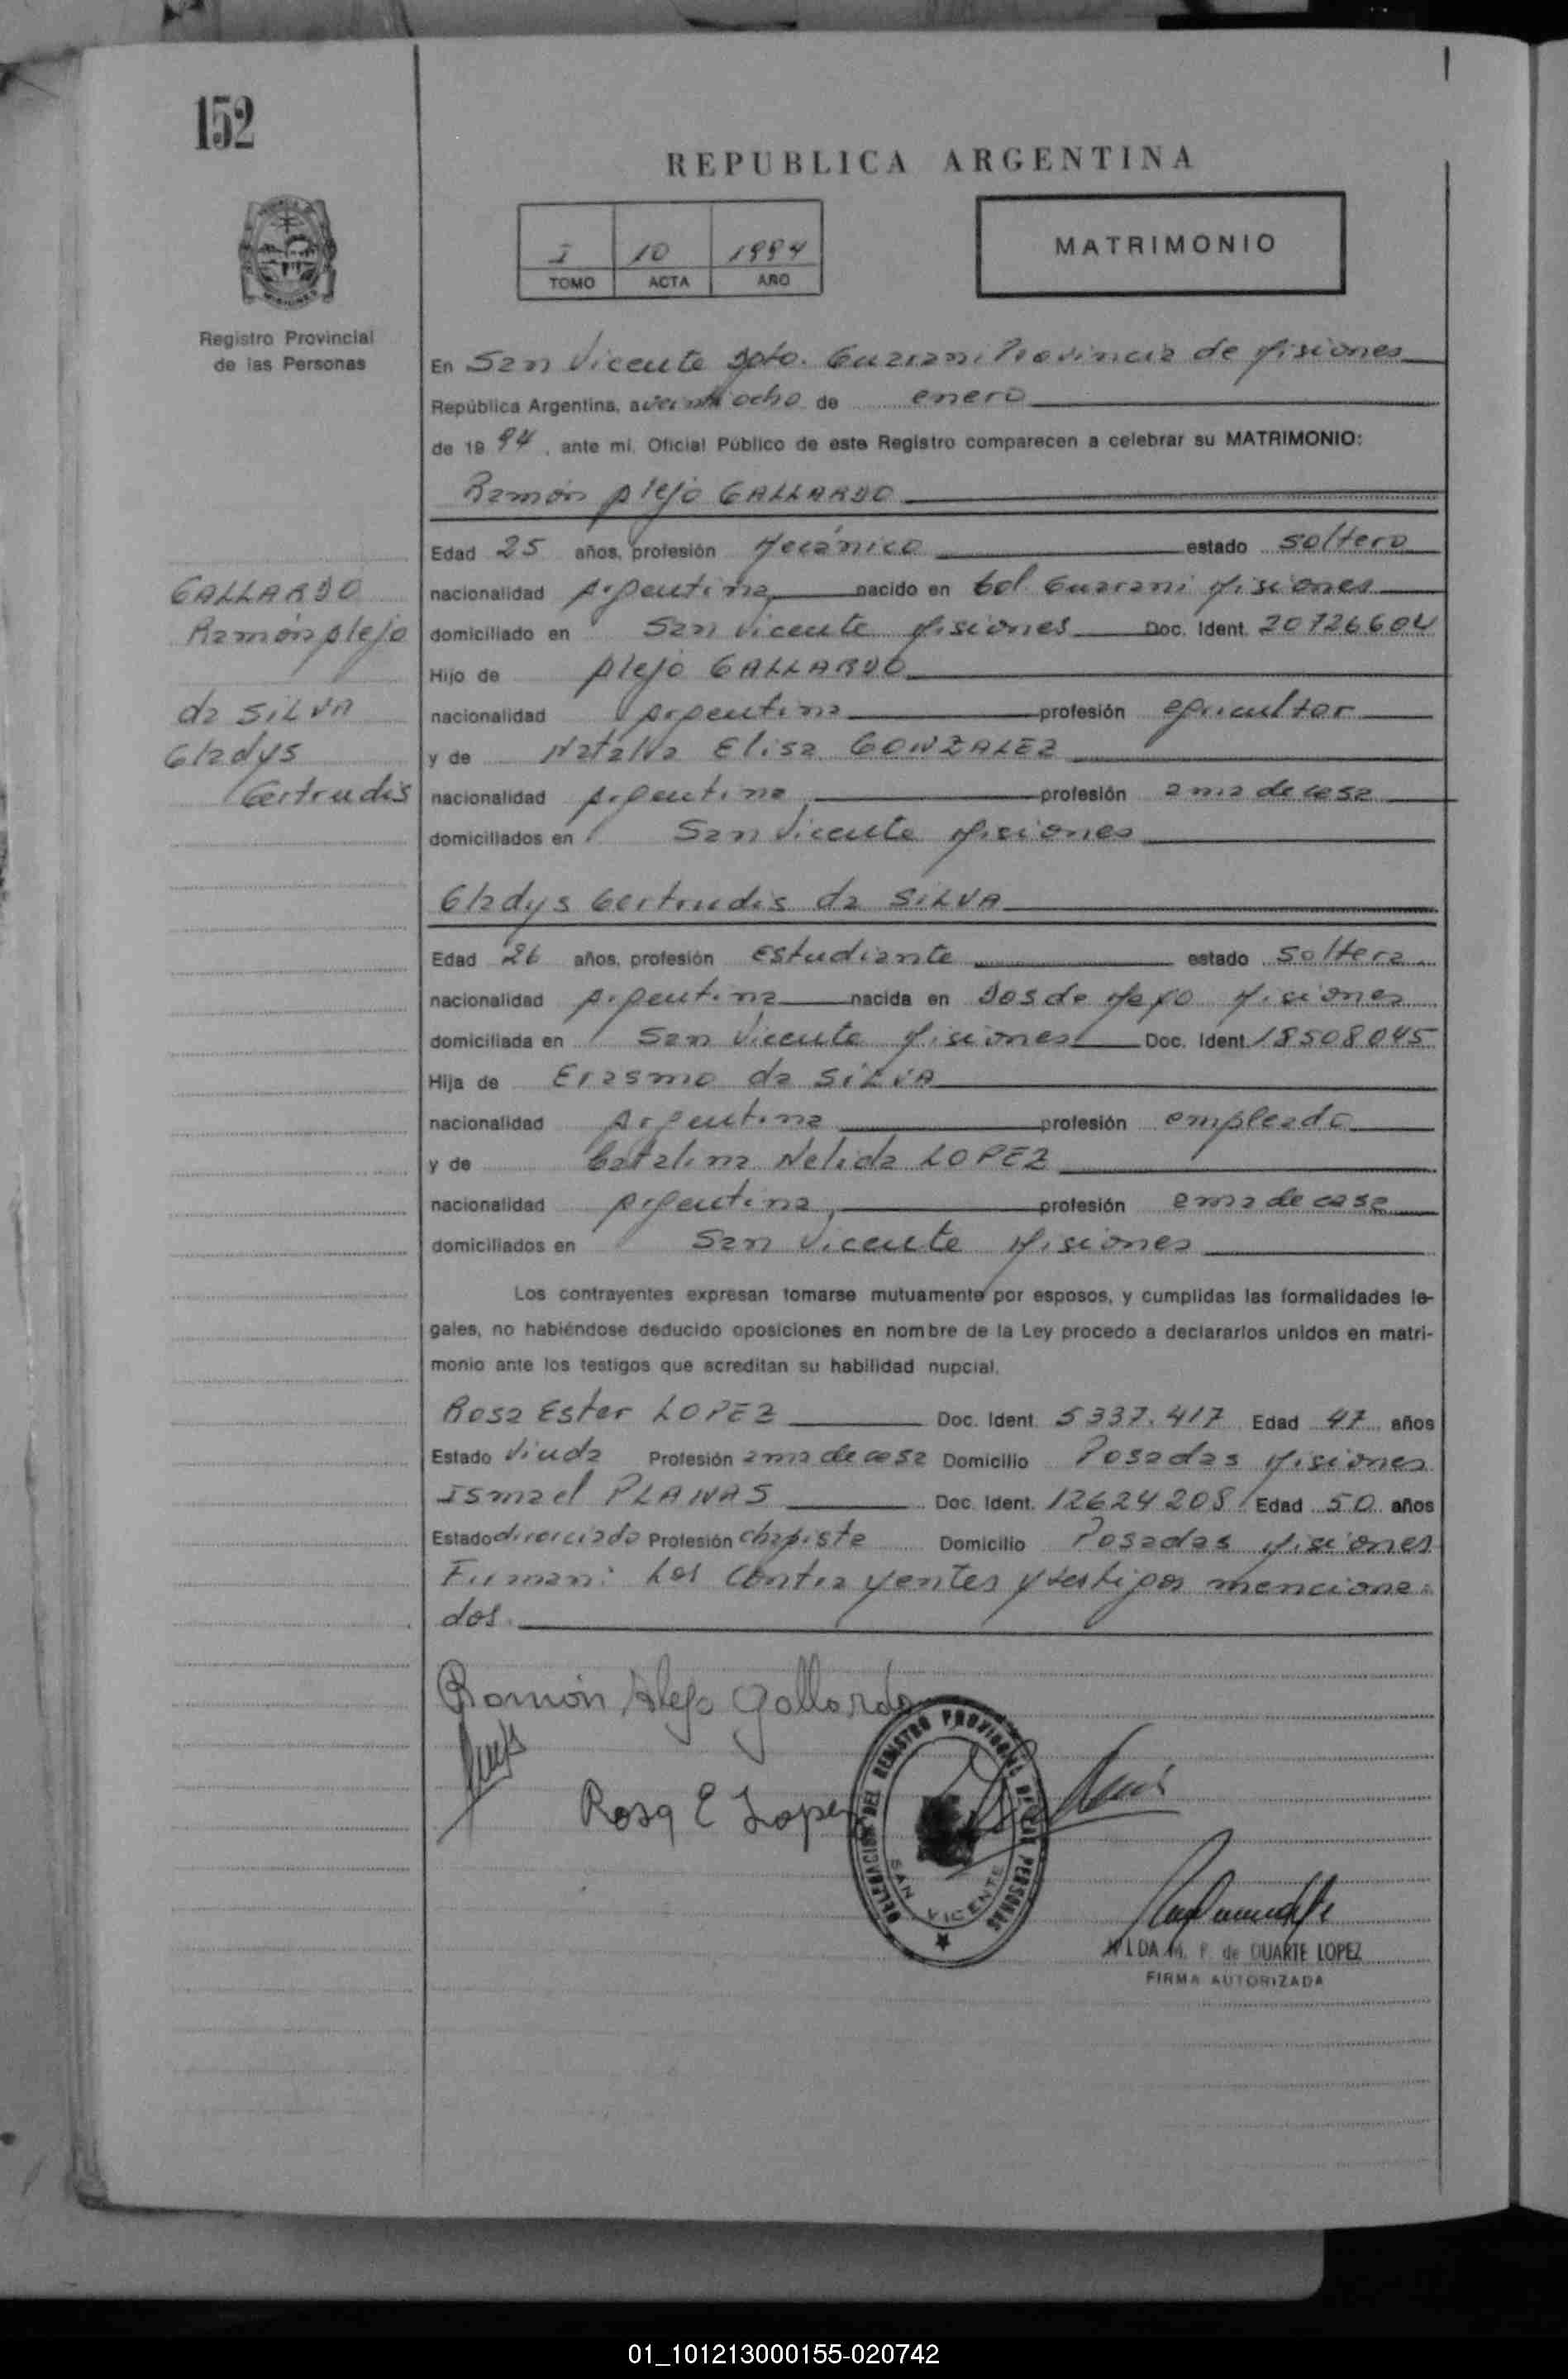 152
REPUBLICA ARGENTINA
I 10 1994
TOMO ACTA AÑO
MATRIMONIO
Registro Provincial
de las Personas
En San Vicente Dpto. Guarani Provincia de Misiones
República Argentina, a veintiocho de enero
de 1994, ante mi, Oficial Público de este Registro comparecen a celebrar su MATRIMONIO:
Ramón Alejo GALLARDO
Edad 25 años, profesión Mecánico estado soltero
nacionalidad Argentina nacido en Col. Guarani Misiones
domiciliado en San Vicente Misiones Doc. Ident. 20726604
Hijo de Alejo GALLARDO
nacionalidad Argentina profesión agricultor
y de Natalva Elisa GONZALEZ
nacionalidad Argentina profesión ama de casa
domiciliados en San Vicente Misiones
GALLARDO
Ramón Alejo
da SILVA
Gladys
Gertrudis
Gladys Gertrudis da SILVA
Edad 26 años, profesión Estudiante estado soltera
nacionalidad Argentina nacida en Dos de Mayo Misiones
domiciliada en San Vicente Misiones Doc. Ident. 18508045
Hija de Erasmo da SILVA
nacionalidad Argentina profesión empleado
y de Catalina Nelida LOPEZ
nacionalidad Argentina profesión ama de casa
domiciliados en San Vicente Misiones
Los contrayentes expresan tomarse mutuamente por esposos, y cumplidas las formalidades le-
gales, no habiéndose deducido oposiciones en nombre de la Ley procedo a declararlos unidos en matri-
monio ante los testigos que acreditan su habilidad nupcial.
Rosa Ester LOPEZ Doc. Ident. 5337.417 Edad 47 años
Estado Viuda Profesión ama de casa Domicilio Posadas Misiones
Ismael PLANAS Doc. Ident. 12624208 Edad 50 años
Estado divorciado Profesión chapista Domicilio Posadas Misiones
Firman: Los contrayentes y testigos menciona=
dos.
Ramón Alejo Gallardo
Rosa E Lopez
DELEGACION DEL REGISTRO PROVINCIAL DE LAS PERSONAS
SAN VICENTE
M. P. de DUARTE LOPEZ
FIRMA AUTORIZADA
01_101213000155-020742